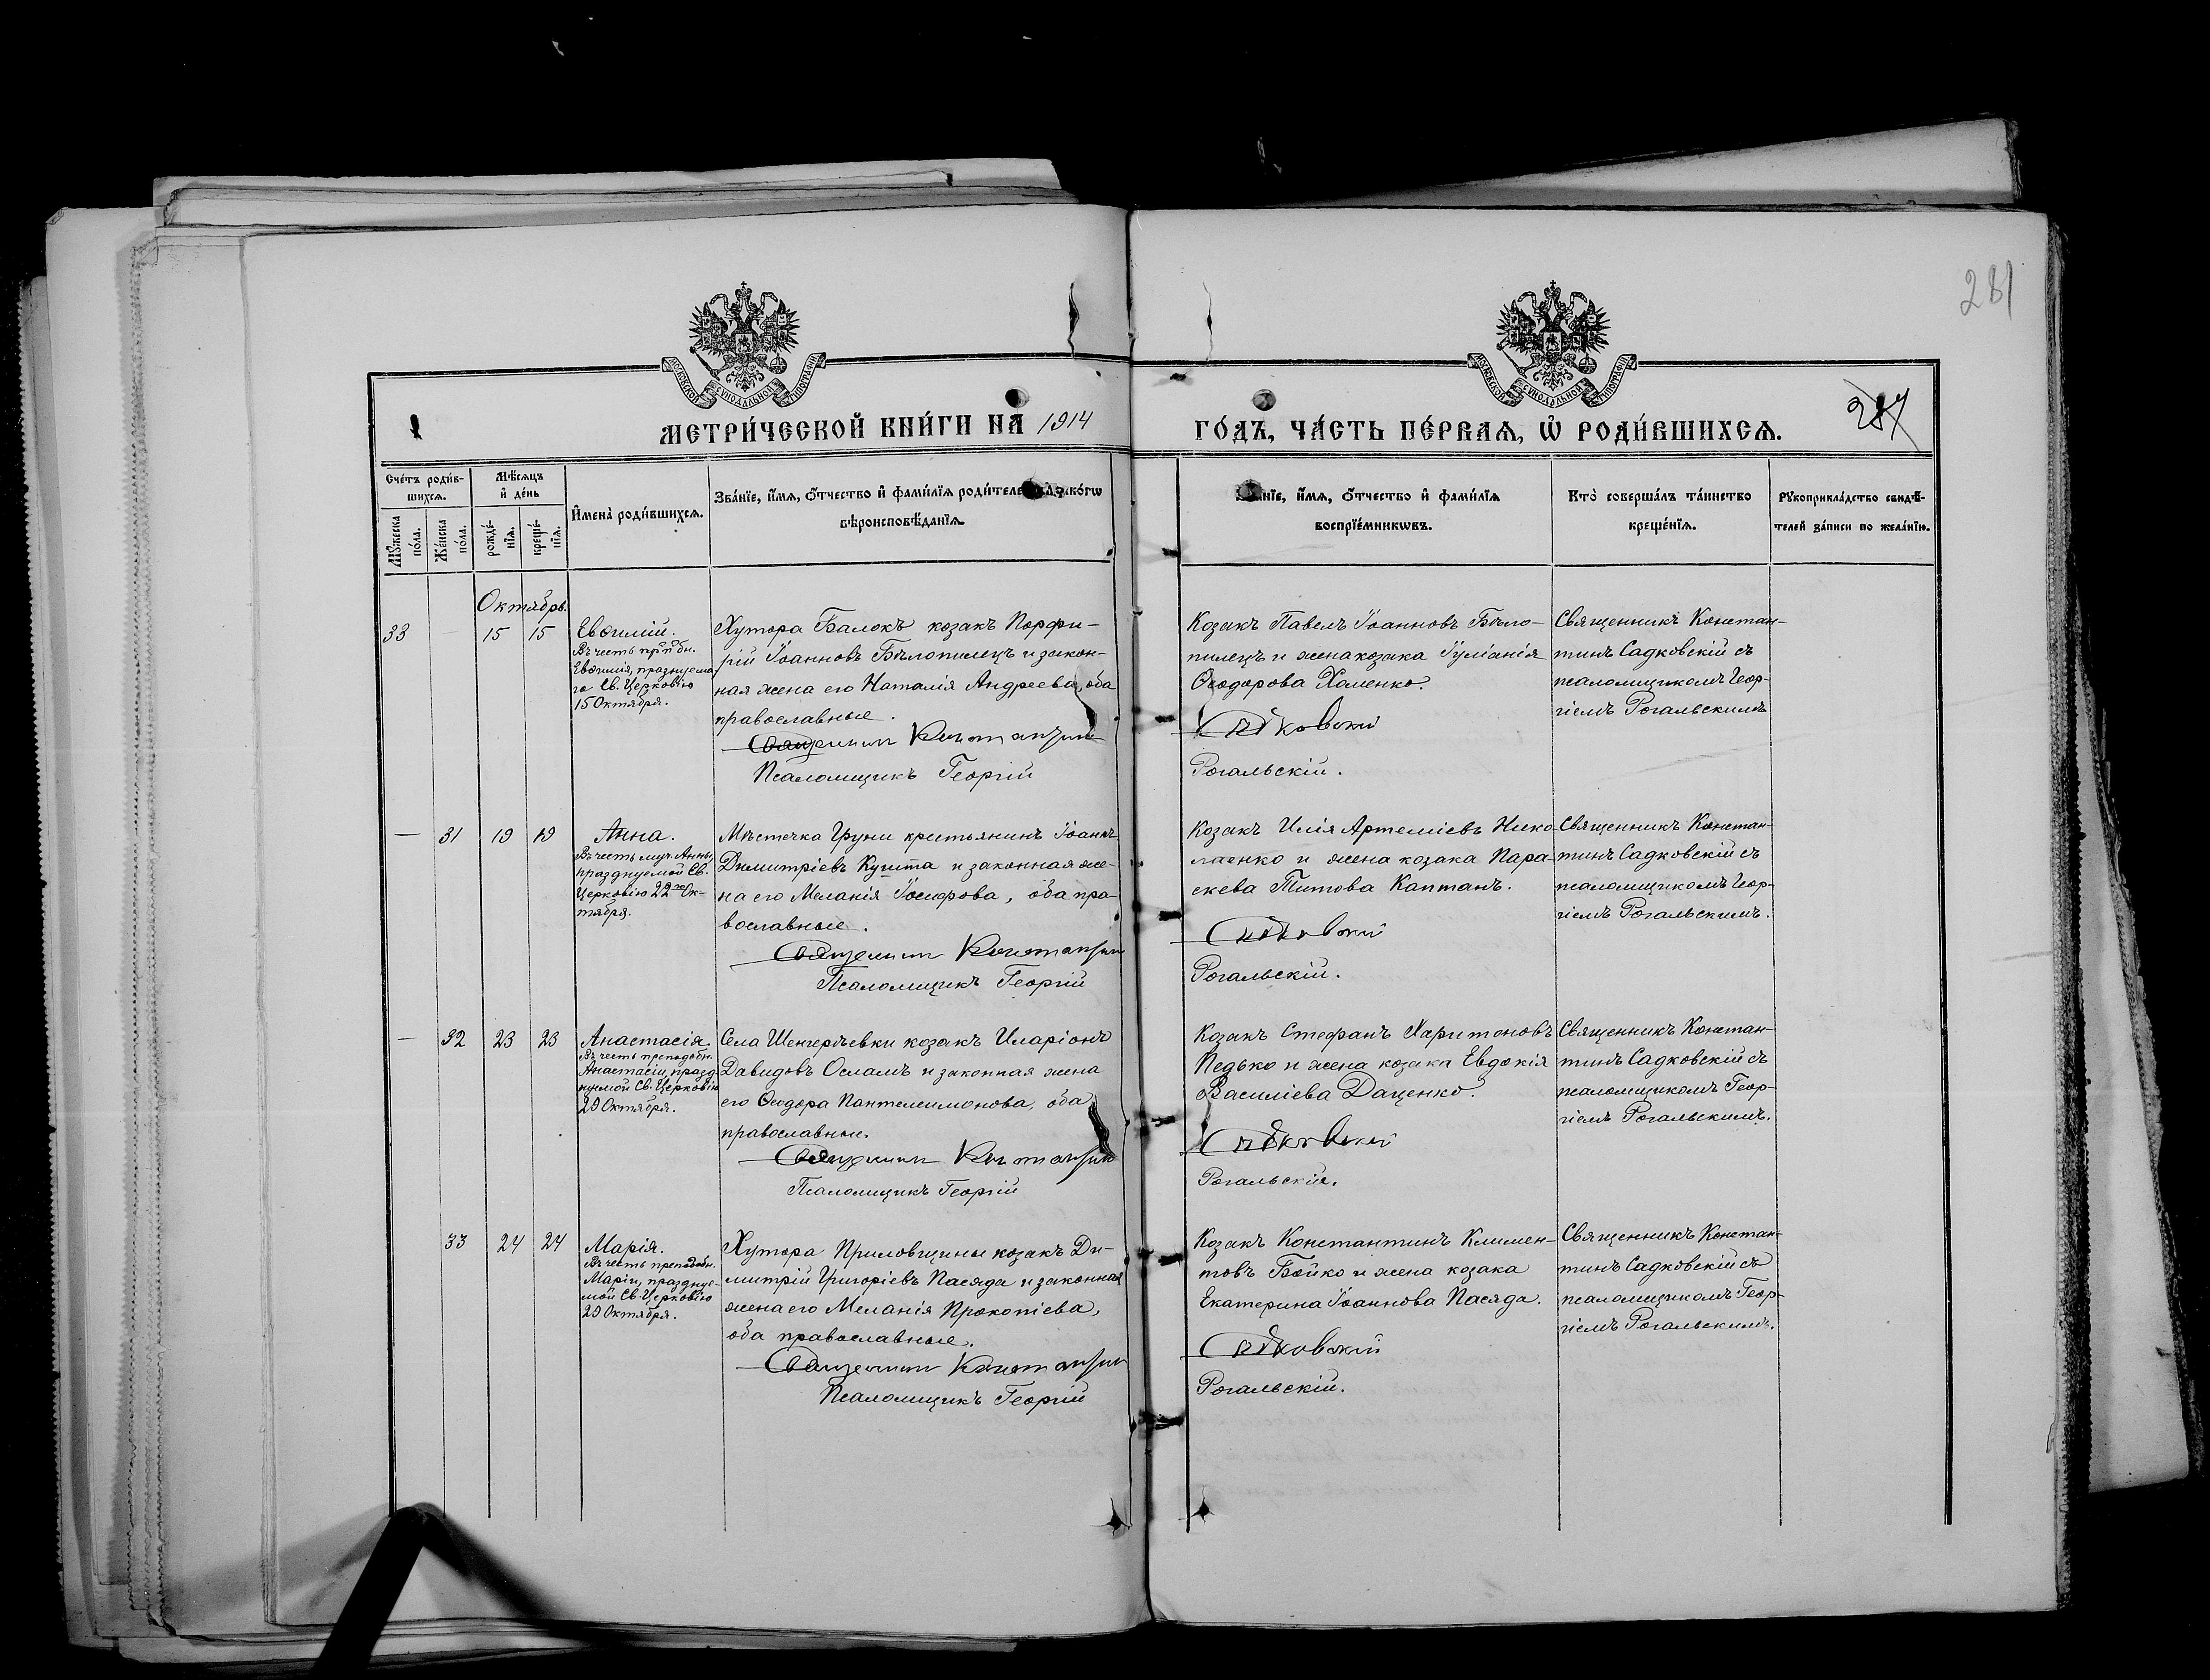 281
МОСКОВСКОЙ СѴНОДАЛЬНОЙ ТИПОГРАФІИ
МОСКОВСКОЙ СѴНОДАЛЬНОЙ ТИПОГРАФІИ
МЕТРИ́ЧЕСКОЙ КНИ́ГИ НА 1914
ГО́ДЪ, ЧА́СТЬ ПЕ́РВАѦ, Ѡ РОДИ́ВШИХСѦ.
287
Сче́тъ роди́в-
шихсѧ.
Мꙋ́жеска
по́ла.
Же́нска
по́ла.
Мѣ́сѧцъ
и҆ де́нь
рожде́-
нїѧ.
креще́-
нїѧ.
И҆мена̀ роди́вшихсѧ.
Зва́нїе, и҆́мѧ, ѻ҆́тчество и҆ фами́лїѧ роди́теле и҆ како́гѡ
вѣроисповѣ́данїѧ.
нїе, и҆́мѧ, ѻ҆́тчество и҆ фами́лїѧ
воспрїе́мникѡвъ.
Кто̀ соверша́лъ та́инство
креще́нїѧ.
Рꙋкоприкла́дство свидѣ́-
телей за́писи по жела́нїю.
Октябрь.
33
—
15
15
Евѳимій.
Въ честь прпбн.
Евѳимія, празднуема
го Св. Церковію
15 Октября.
Хутора Балокъ козакъ Порфи-
рій Іоанновъ Бѣлопилецъ и закон-
ная жена его Наталія Андреева, оба
православные.
Священник Константин
Псаломщикъ Георгій
Козакъ Павелъ Іоанновъ Бѣло-
пилецъ и жена козака Іуліанія
Ѳеодорова Хоменко.
Садковскій
Рогальскій.
Священникъ Констан-
тинъ Садковскій съ
псаломщикомъ Геор-
гіемъ Рогальскимъ
—
31
19
19
Анна.
Въ честь муч. Анны,
празднуемой Св.
Церковію 22го Ок-
тября.
Мѣстечка Груни крестьянинъ Іоаннъ
Димитріевъ и законная же-
на его Меланія , оба пра-
вославные.
Священник Константин
Псаломщикъ Георгій
Козакъ Илія Артеміевъ Нико
лаенко и жена козака Пара-
скева Титова Каптанъ.
Садковскій
Рогальскій.
Священникъ Констан-
тинъ Садковскій съ
псаломщикомъ Геор-
гіемъ Рогальскимъ.
—
32
23
23
Анастасія.
Въ честь преподобн.
Анастасіи, празд-
нуемой Св. Церковію
29 Октября.
Села Шенгеріевки козакъ Иларіонъ
Давидовъ Осламъ и законная жена
его Ѳеодора Пантелеимонова, оба
православные.
Священник Константин
Псаломщикъ Георгій
Козакъ Стефанъ Харитоновъ
Педько и жена козака Евдокія
Василіева Даценко.
Садковскій
Рогальскій.
Священникъ Констан-
тинъ Садковскій съ
псаломщикомъ Геор-
гіемъ Рогальскимъ.
33
24
24
Марія.
Въ честь преподобн.
Маріи, празднуе-
мой Св. Церковію
29 Октября.
Хутора Приловщины козакъ Ди-
митрій Григоріевъ Пасяда и законная
жена его Меланія Прокопіева,
оба православные.
Священник Константин
Псаломщикъ Георгій
Козакъ Константинъ Климен-
товъ Бойко и жена козака
Екатерина Іоаннова Пасяда.
Садковскій
Рогальскій.
Священникъ Констан-
тинъ Садковскій съ
псаломщикомъ Геор-
гіемъ Рогальскимъ.